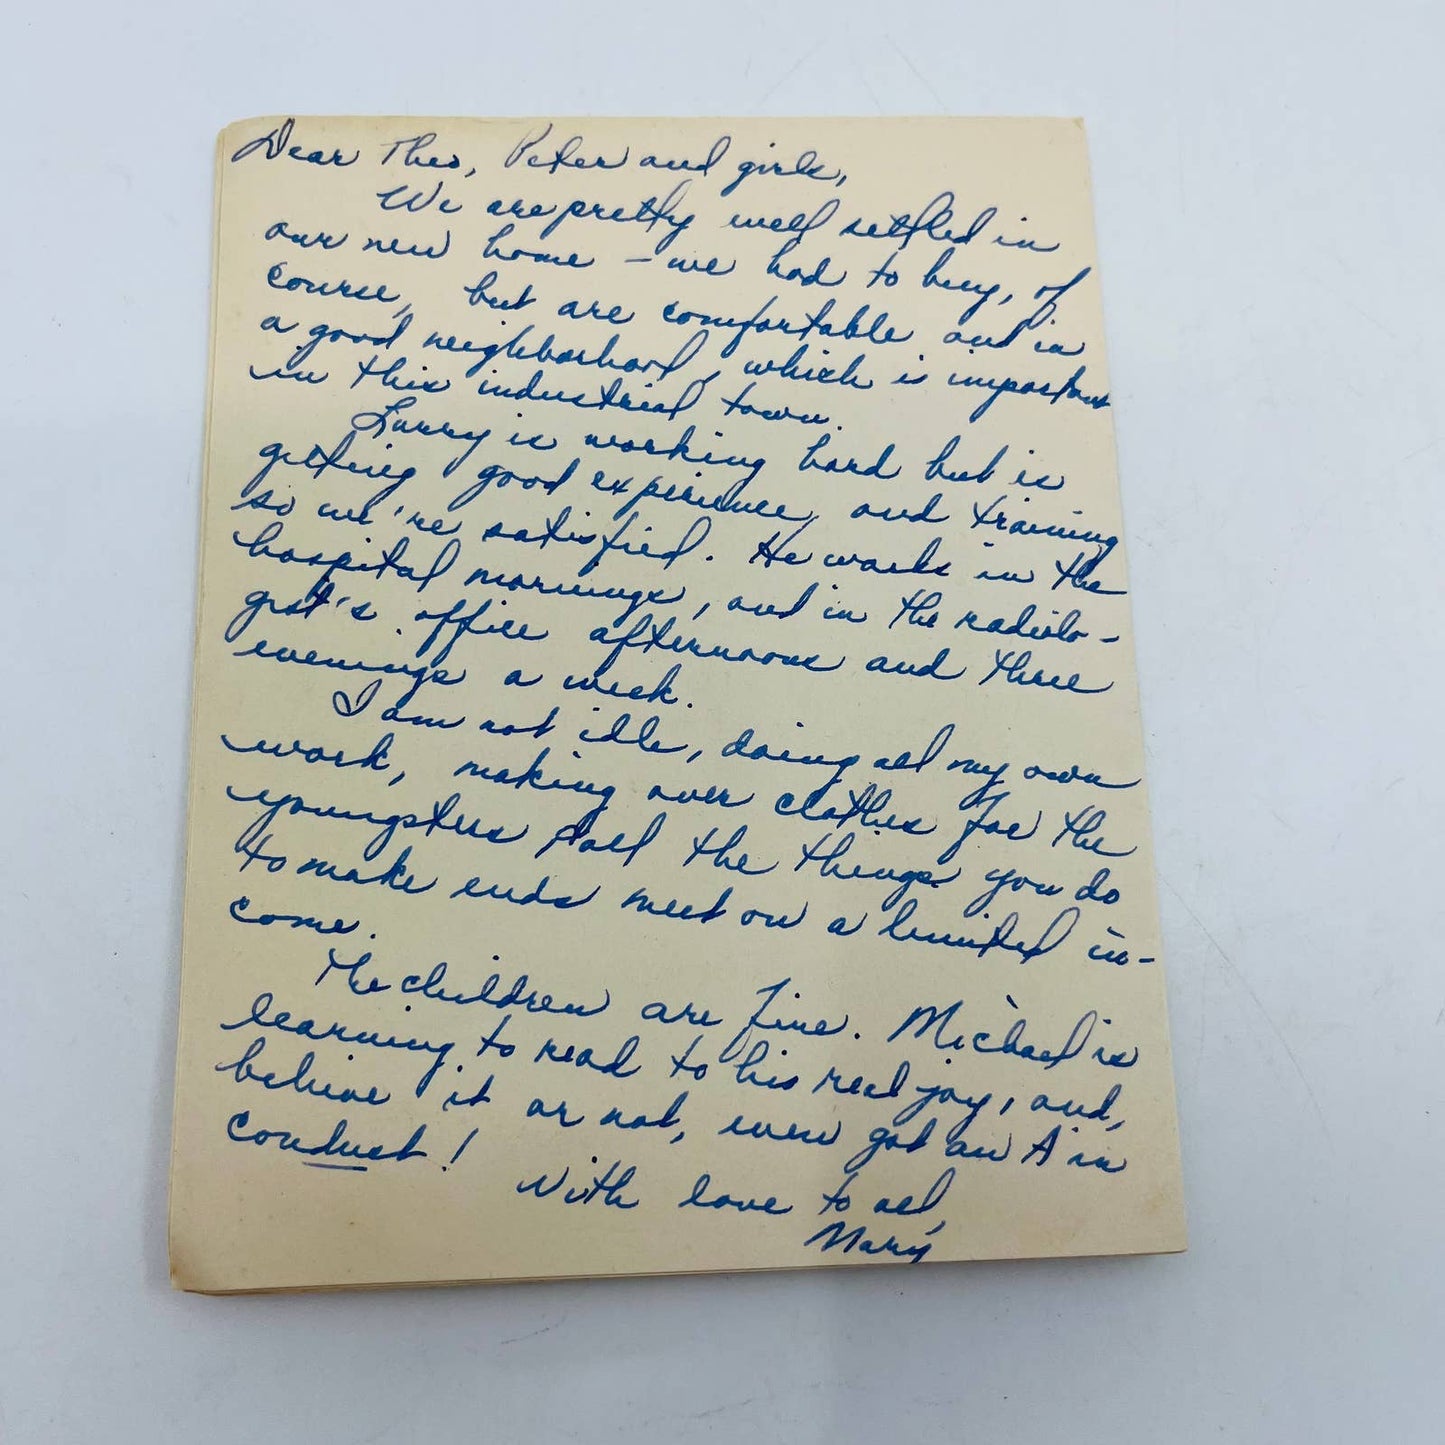 Dear Theo, Peter and girls,
We are pretty well settled in
our new home - we had to buy, of
course, but are comfortable and in
a good neighborhood, which is important
in this industrial town.
Larry is working hard but is
getting good experience, and training
so we're satisfied. He works in the
hospital mornings, and in the radiolo-
gist's office afternoons and three
evenings a week.
I am not idle, doing all my own
work, making over clothes for the
youngsters & all the things you do
to make ends meet on a limited in-
come.
The children are fine. Michael is
learning to read to his real joy, and,
believe it or not, even got an A in
conduct!
With love to all,
Mary